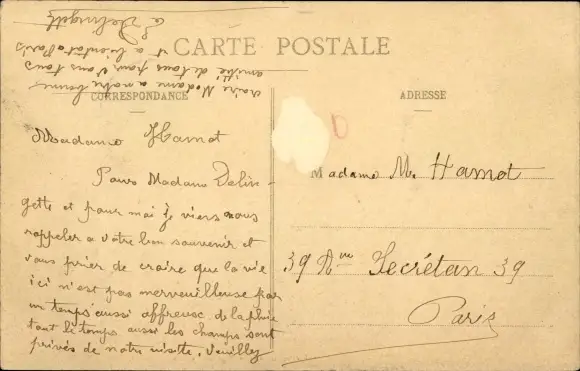 CARTE POSTALE
CORRESPONDANCE
ADRESSE
Madame Hamot
Pour Madame Delin-
gette et pour moi je viens nous
rappeler a votre bon souvenir et
vous prier de croire que la vie
ici n'est pas merveilleuse par
un temps aussi affreux de la pluie
tout le temps aussi les champs sont
privés de notre visite. Veuillez
croire Madame a notre bonne
amitié de tous pour vous tous
et a bientot a Paris
E Delingette
Madame M. Hamot
39 Ave Secrétan 39
Paris